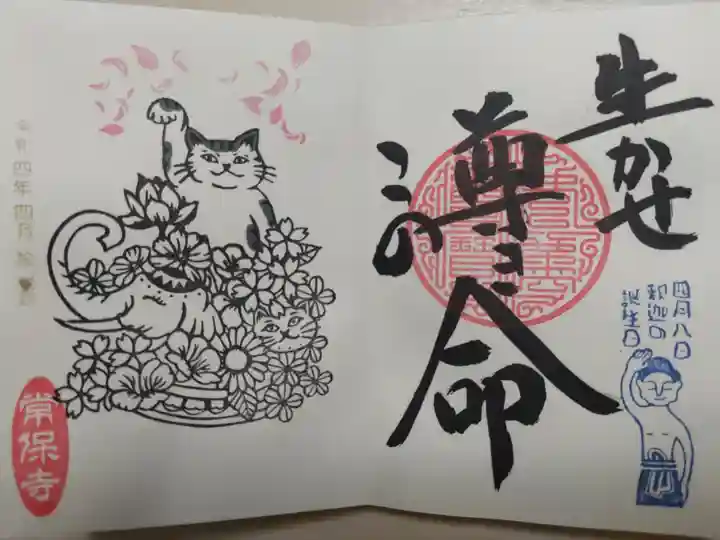 生かせ
尊
この
命
四月八日
釈迦の
誕生日
令和四年四月
常保寺